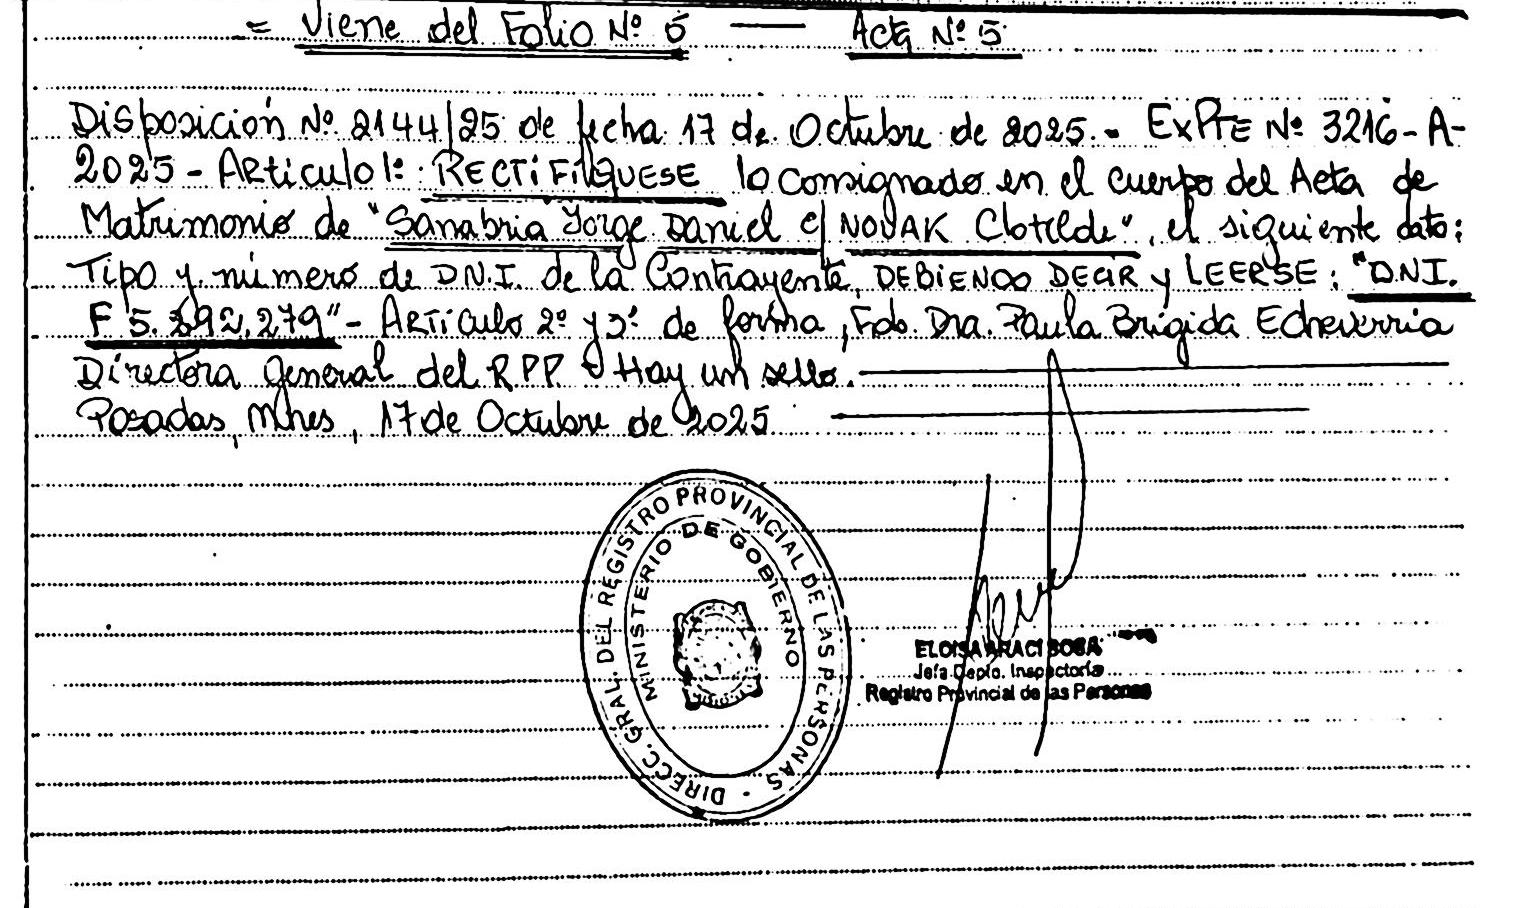 = Viene del Folio Nº 6 — Acta Nº 5
Disposición Nº 2144/25 de fecha 17 de Octubre de 2025.- ExPTE Nº 3216-A-
2025 - Articulo 1º: RECTIFÍQUESE lo consignado en el cuerpo del Acta de
Matrimonio de "Sanabria Jorge Daniel c/ NOVAK Clotilde", el siguiente dato:
Tipo y número de D.N.I. de la Contrayente, DEBIENDO DECIR y LEERSE: "D.N.I.
F 5.892.279" - Artículo 2º y 3º de forma, Fdo. Dra. Paula Brígida Echeverria
Directora General del RPP Hay un sello.
Posadas, Mnes, 17 de Octubre de 2025
DIRECC. GRAL. DEL REGISTRO PROVINCIAL DE LAS PERSONAS
MINISTERIO DE GOBIERNO
ELOISA ARACI SOSA
Jefa Depto. Inspectoría
Registro Provincial de las Personas